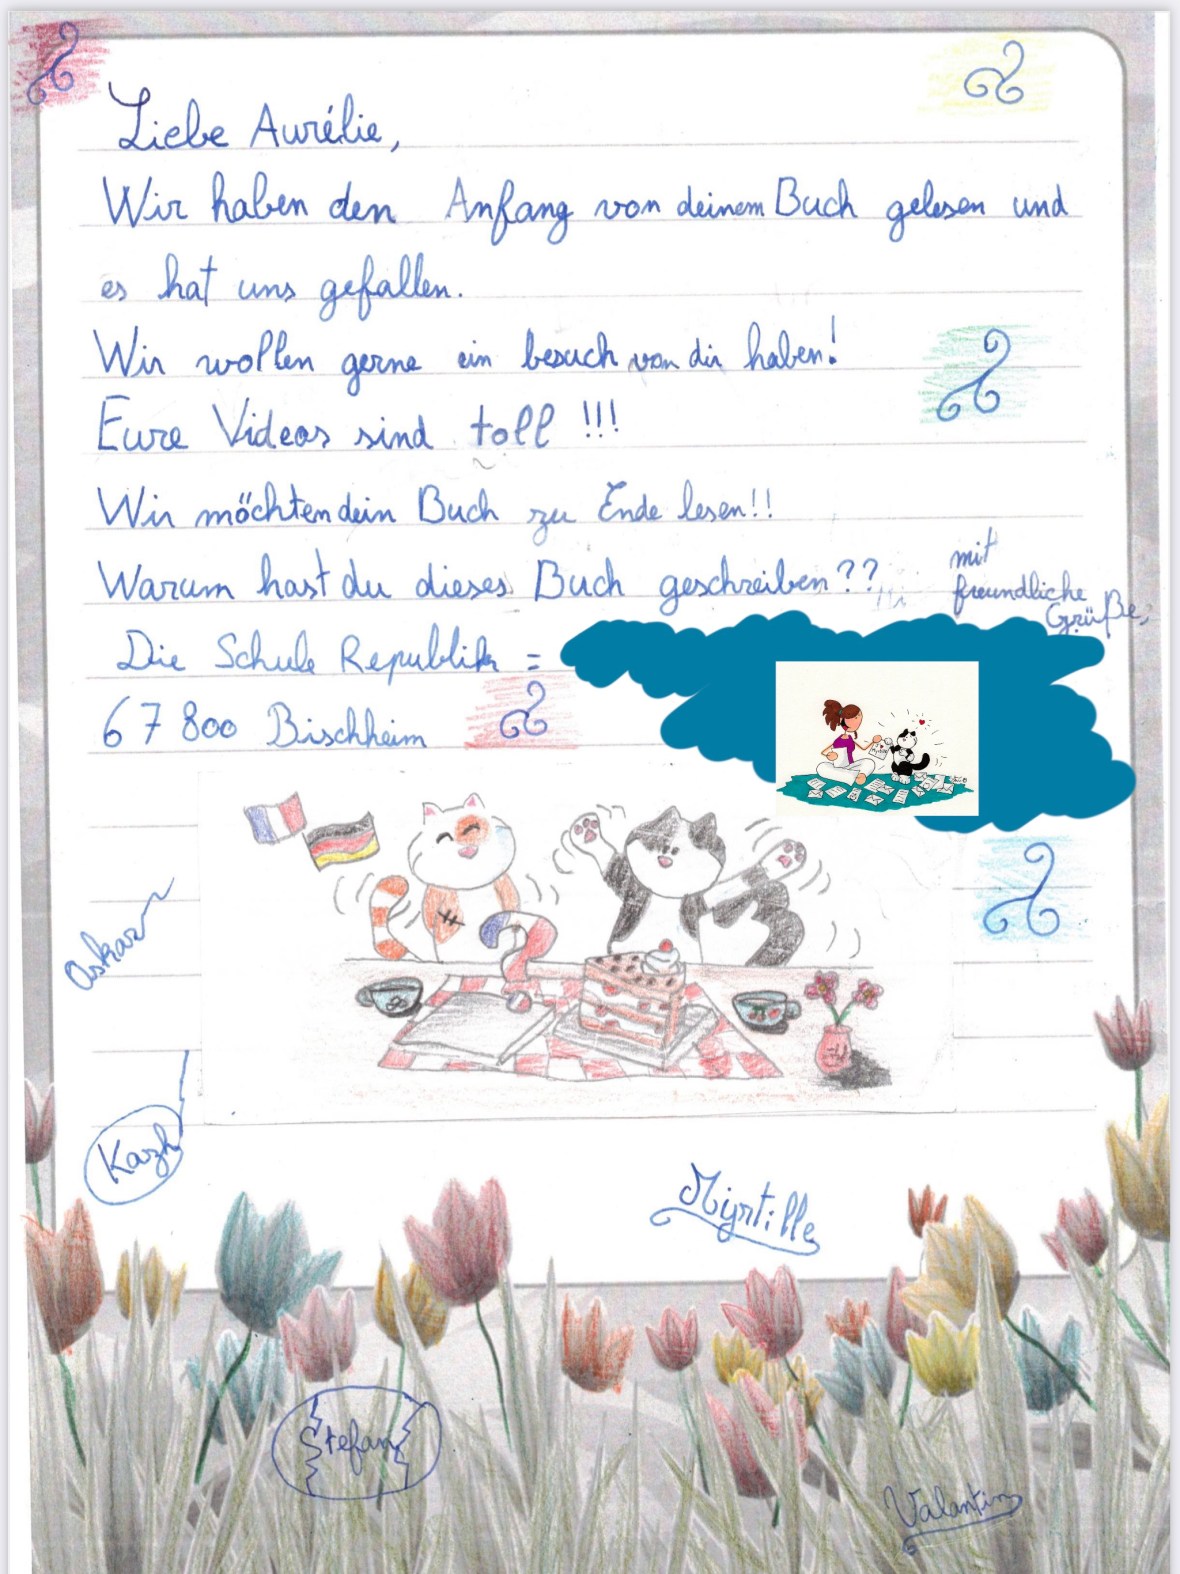 Liebe Aurélie,
Wir haben den Anfang von deinem Buch gelesen und
es hat uns gefallen.
Wir wollen gerne ein besuch von dir haben!
Eure Videos sind toll !!!
Wir möchten dein Buch zu Ende lesen!!
Warum hast du dieses Buch geschreiben??
mit
freundliche
Grüße,
Die Schule Republik =
67800 Bischheim
Oskar
Kazh
Myrtille
Stefan
Valantin